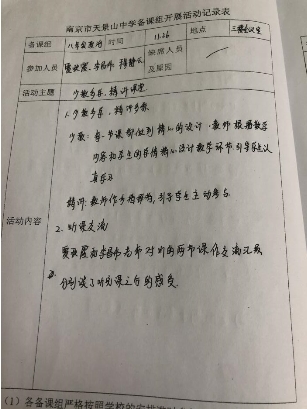 南京市天景山中学备课组开展活动记录表
备课组 八年级 时间 11.26 地点 三楼会议室
参加人员 缺席人员及原因
活动主题 少教多学、精讲课堂
活动内容
1. 少教多学、精讲多练
少教：每一节课都做到精心的设计，教师根据教学
内容和学生的具体精心设计教学环节引导学生认
真学习
精讲：教师作为指挥棒，引导学生主动参与
2. 听课交流
老师对听的两节课作交流汇报
分别谈了听完课之后的感受
(1) 各备课组严格按照学校的安排